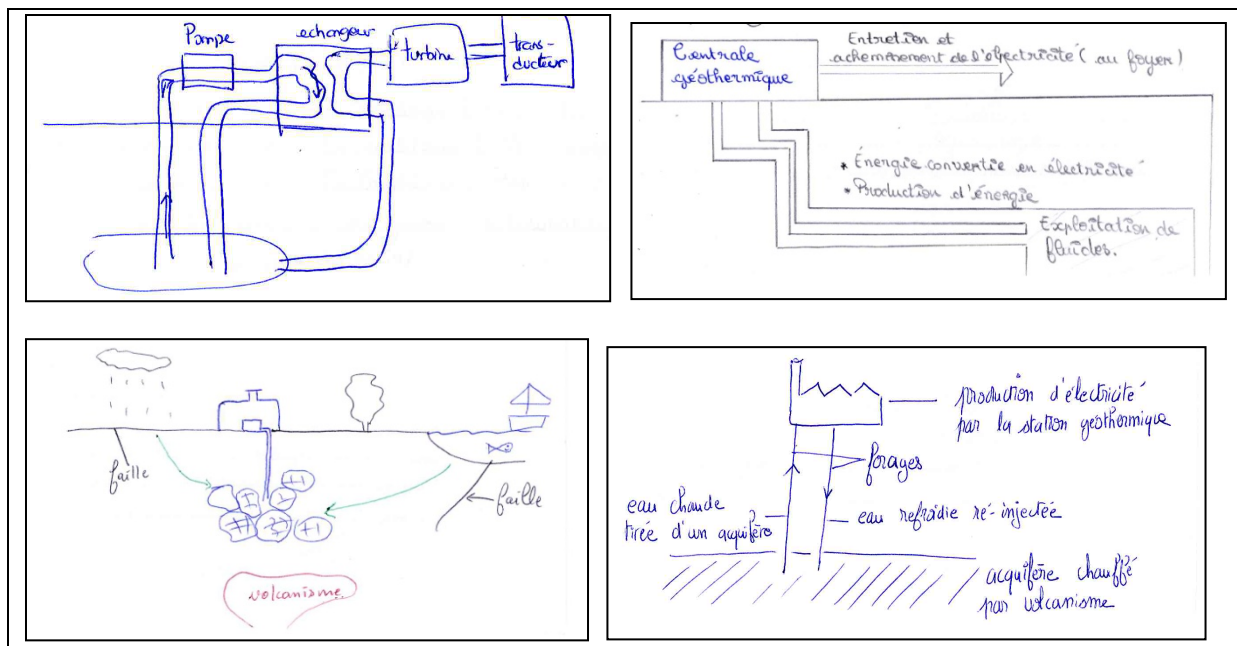 Pompe
echangeur
turbine
trans-
ducteur
Centrale
géothermique
Entretien et
acheminement de l'électricité (au foyer)
* Énergie convertie en électricité
* Production d'énergie
Exploitation de
fluides.
faille
faille
volcanisme
production d'électricité
par la station géothermique
forages
eau chaude
tirée d'un acquifère
eau refroidie ré-injectée
acquifère chauffé
par volcanisme